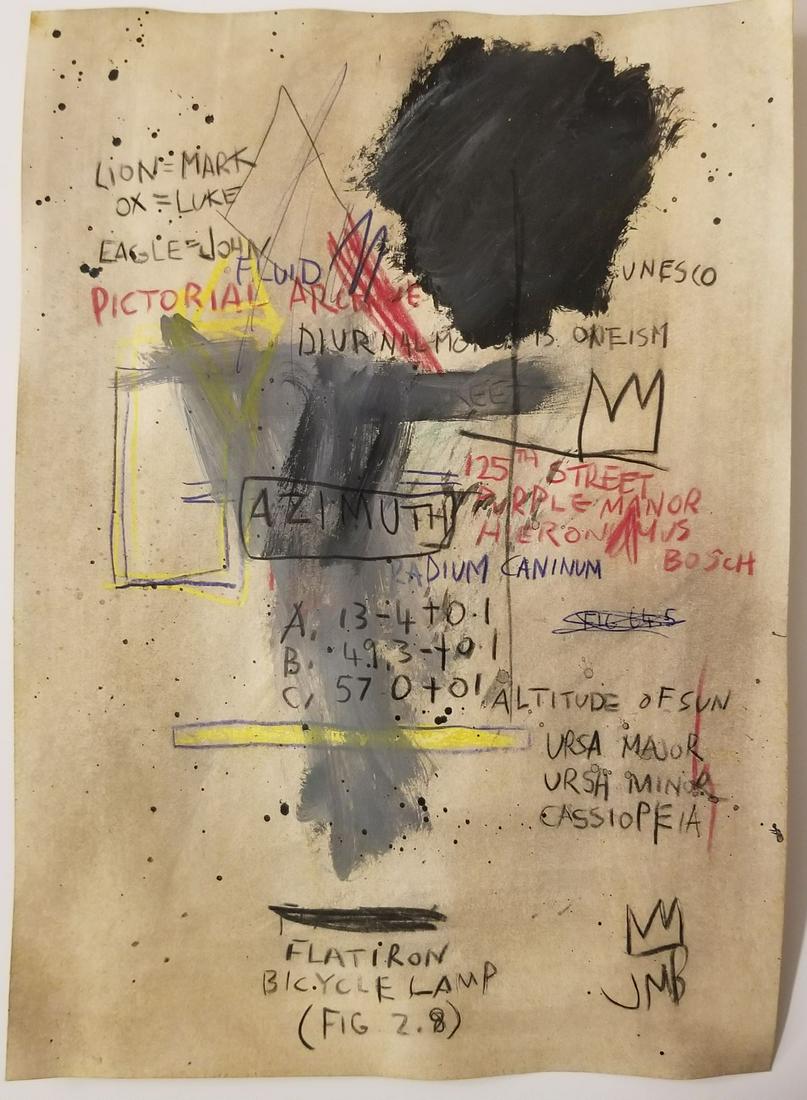 LION=MARK
OX=LUKE
EAGLE=JOHN
FLUID
UNESCO
PICTORIAL
DIURNAL IS ONEISM
125TH STREET
PURPLE MANOR
HIERONYMUS
BOSCH
AZIMUTH
RADIUM CANINUM
A. 13-4+0.1
B. .49.3-+0.1
C, 57 0+01
ALTITUDE OF SUN
URSA MAJOR
URSA MINOR
CASSIOPEIA
FLATIRON
BICYCLE LAMP
(FIG 2.8)
JMB